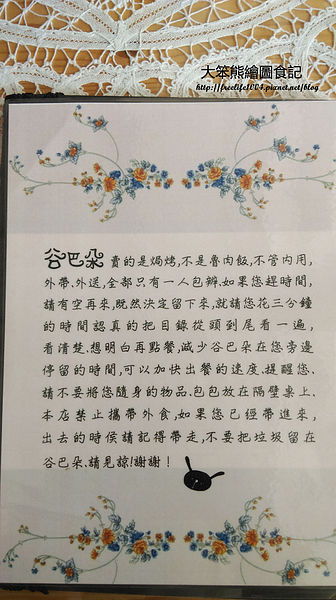 大笨熊繪圖食記
http://freelife1004.pixnet.net/blog
谷巴朵 賣的是焗烤,不是魯肉飯,不管內用,
外帶、外送,全部只有一人包辦、如果您趕時間,
請有空再來,既然決定留下來,就請您花三分鐘
的時間認真的把目錄從頭到尾看一遍,
看清楚、想明白再點餐,減少谷巴朵在您旁邊
停留的時間,可以加快出餐的速度、提醒您、
請不要將您隨身的物品、包包放在隔壁桌上、
本店禁止攜帶外食,如果您已經帶進來,
出去的時侯請記得帶走,不要把垃圾留在
谷巴朵、請見諒!謝謝!